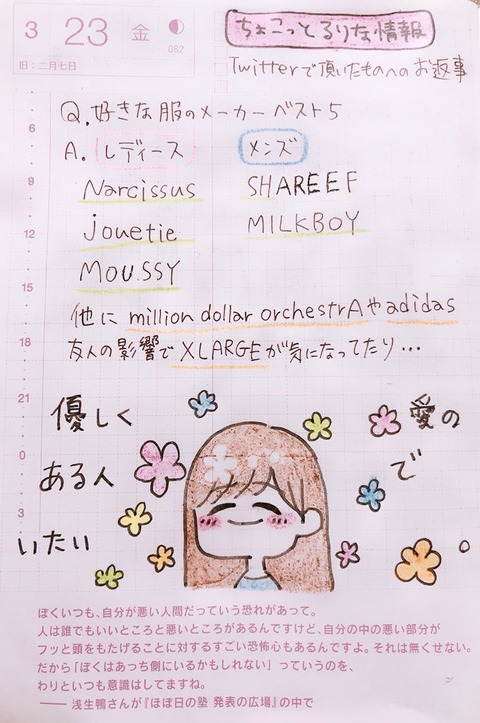 3 23 金
082
旧:二月七日
ちょこっとるりな情報
Twitterで頂いたものへのお返事
Q.好きな服のメーカーベスト5
A. レディース メンズ
Narcissus SHAREEF
jouetie MILKBOY
MOUSSY
他に million dollar orchestrA や adidas
友人の影響で XLARGE が気になってたり…
6
9
12
15
18
21
0
3
優しく 愛の
ある人 で
いたい 。
ぼくいつも、自分が悪い人間だっていう恐れがあって。
人は誰でもいいところと悪いところがあるんですけど、自分の中の悪い部分が
フッと頭をもたげることに対するすごい恐怖心もあるんですよ。それは無くせない。
だから「ぼくはあっち側にいるかもしれない」っていうのを、
わりといつも意識はしてますね。
── 浅生鴨さんが『ほぼ日の塾 発表の広場』の中で